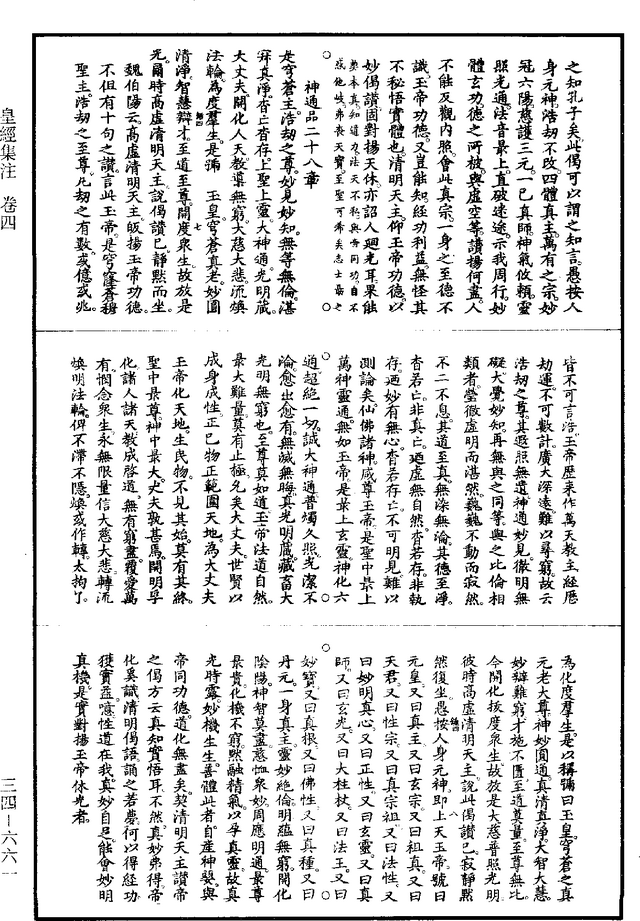 之知孔子矣此偈可以謂之知言愚按人
身元神浩劫不改四體真主萬有之宗妙
冠六陽慈護三元一己真師神氣攸賴靈
照光通法音景上直破迷途示我周行妙
體玄功德之所被與虛空等讚揚何盡人
不能反觀內照會此真宗一身之至德不
識玉帝功德又豈能知經功利益無怪其
不秘悟實體也清明天主仰玉帝功德以
妙偈讚固對揚天休亦詔人廻光耳果能
神通品二十八章
是穹蒼主浩劫之尊妙見妙知無等無倫湛
寂真淨杳亡杳存上聖上靈大神通光明藏
大丈夫開化人天教導無窮大慈大悲流煥
法輪為度羣生是號玉皇穹蒼真老妙圓
清淨智慧辯才至道至尊開度衆生故放是
光爾時高虛清明天主說偈讚已靜默而坐
魏伯陽云高虛清明天主皈揚玉帝功德
不但有十句之讚言此玉帝是穹窿蒼穆
聖主浩劫之至尊凡劫之有數或億或兆
皆不可言浩玉帝歷來作萬天教主經歷
劫運不可數計廣大深遠難以尋窮故云
浩劫之尊其遐照無遺神通妙見徹明無
礙大覺妙知再無與之同等與之比倫相
類者瑩徹虛明而湛然巍巍不動而寂然
不二不息其道至真無染無淪其德至淨
杳若亡非真亡迺虛無自然杳若存非執
存迺妙有無心杳若存亡不可明見難以
測論矣仙佛諸神咸尊玉帝是聖中最上
萬神靈通無如玉帝是景上玄靈神化六
通超絕一切誠大神通普燭久照光潔不
淪愈出愈有無減無晦真光明藏藏畜大
光明無窮也至尊莫如道玉帝法道自然
最大難量莫有止極允矣大丈夫世賢以
成身成性正己物正範圍天地為大丈夫
玉帝化天地生民物不見其始莫有其終
聖中最尊神中最大丈夫孰甚焉開明孚
化諸人諸天教成啓道無有窮盡覆愛萬
有憫念衆生永無限量信大慈大悲轉流
煥明法輪俾不滯不隱煥或作轉太拘了
為化度羣生是以稱號曰玉皇穹蒼之真
元老大尊神妙圓通真清真淨大智大慧
妙辯難窮才施不匱至道莫量至尊無比
今開化拔度衆生故放是大慈普照光明
彼時高虛清明天主說此偈讚已寂靜默
然復坐愚按人身元神即上天玉帝號曰
元皇又曰真主又曰玄靈又曰祖真又曰
天君又曰性宗又曰真宗祖又曰法性又
曰妙明真心又曰正性又曰玄靈又曰真
師又曰玄光又曰大柱杖又曰法王又曰
妙寶又曰真根又曰佛性又曰真種又曰
丹元一身真主靈妙絕倫明蘊無窮開化
陰陽神智莫盡慈恤衆妙周應明通最尊
最貴化機不窮默融精氣以孚真靈故真
光時露妙機生生善體此者自產神嬰與
帝同功德道化無盡矣契清明天主讚帝
之偈方云真知實悟耳不然真妙弗得帝
化奚識清明偈語誦之若夢何以得經功
獲實益噫性道在我真妙自足能會妙明
真機是實對揚玉帝休光者
皇經集注 卷四
三四—六六一